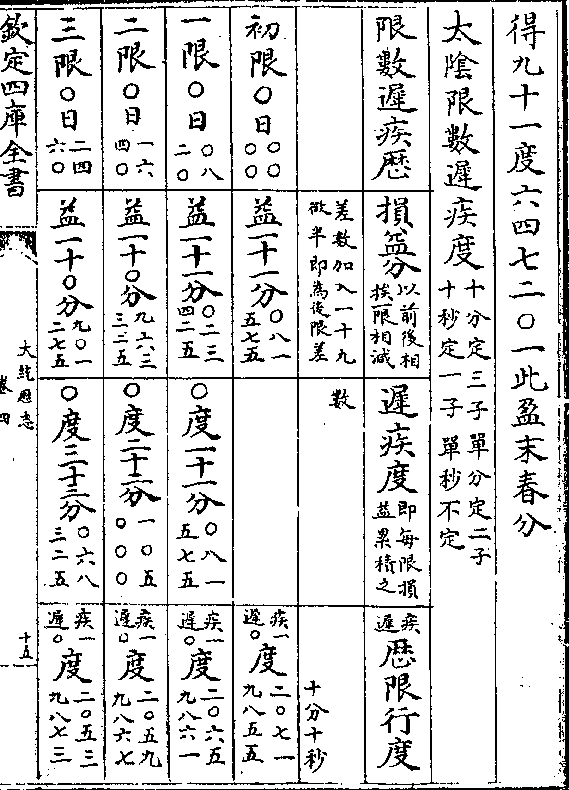 得九十一度六四七二〇一此盈末春分
太陰限數遲疾度 十分定三子單分定二子 十秒定一子單秒不定
限數遲疾歴 損益分 以前後相挨限相減 遲疾度 即每限損益累積之 疾遲歴限行度
差數加入一十九微半即為後限差 數 十分十秒
初限〇日 〇〇 〇〇 益一十一分 〇八一 五七五 疾一 遲〇 度 二〇七一 九八五五
一限〇日 〇八 二〇 益一十一分 〇二三 四二五 〇度一十一分 〇八一 五七五 疾一 遲〇 度 二〇六五 九八六一
二限〇日 一六 四〇 益一十〇分 九六三 三二五 〇度二十二分 一〇五 〇〇〇 疾一 遲〇 度 二〇五九 九八六七
三限〇日 二四 六〇 益一十〇分 九〇一 二七五 〇度三十三分 〇六八 三二五 疾一 遲〇 度 二〇五三 九八七三
欽定四庫全書
大統歴志
卷四
十五